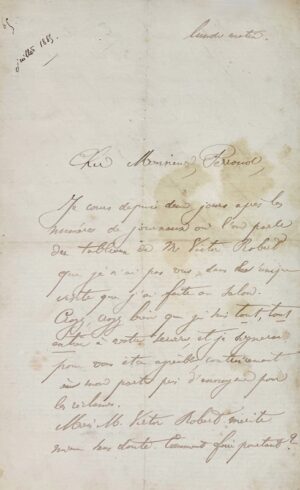 juillet 1865.
lundi matin.
Cher Monsieur Perraud,
Je cours depuis deux jours après les
numéros de journaux où l'on parle
des tableaux de M Victor Robert
que je n'ai pas vus, dans les
visite que j'ai faite au Salon.
Croyez bien que je suis tout, tout
entier à votre service, et je
pour vous être agréable contrairement
les réclames.
Mais M. Victor Robert mérite
mieux sans doute. Comment faire pourtant?